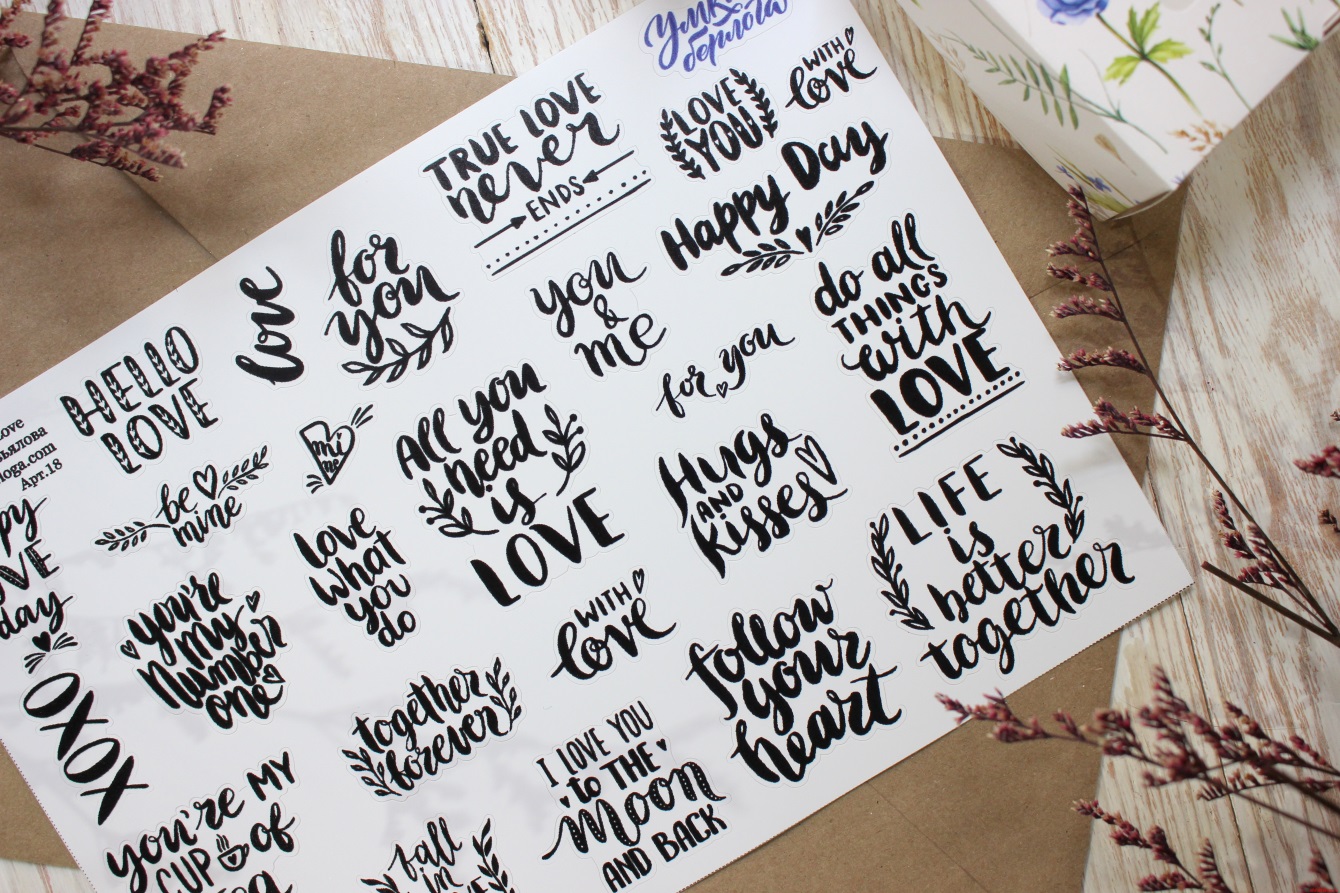 Умка
берлога
TRUE LOVE
never
ENDS
LOVE
YOU
WITH
love
Happy Day
love
for
you
you
&
me
do all
THINGS
with
LOVE
HELLO
LOVE
for you
mi
mi
All you
need
is
LOVE
Hugs
AND
kisses
LIFE
is
better
together
Love
loga.com
Арт.18
be
mine
love
what
you
do
day
you're
my
number
one
WITH
love
follow
your
heart
XOXO
together
forever
I LOVE YOU
to THE
Moon
AND BACK
you're MY
CUP of
fall
in